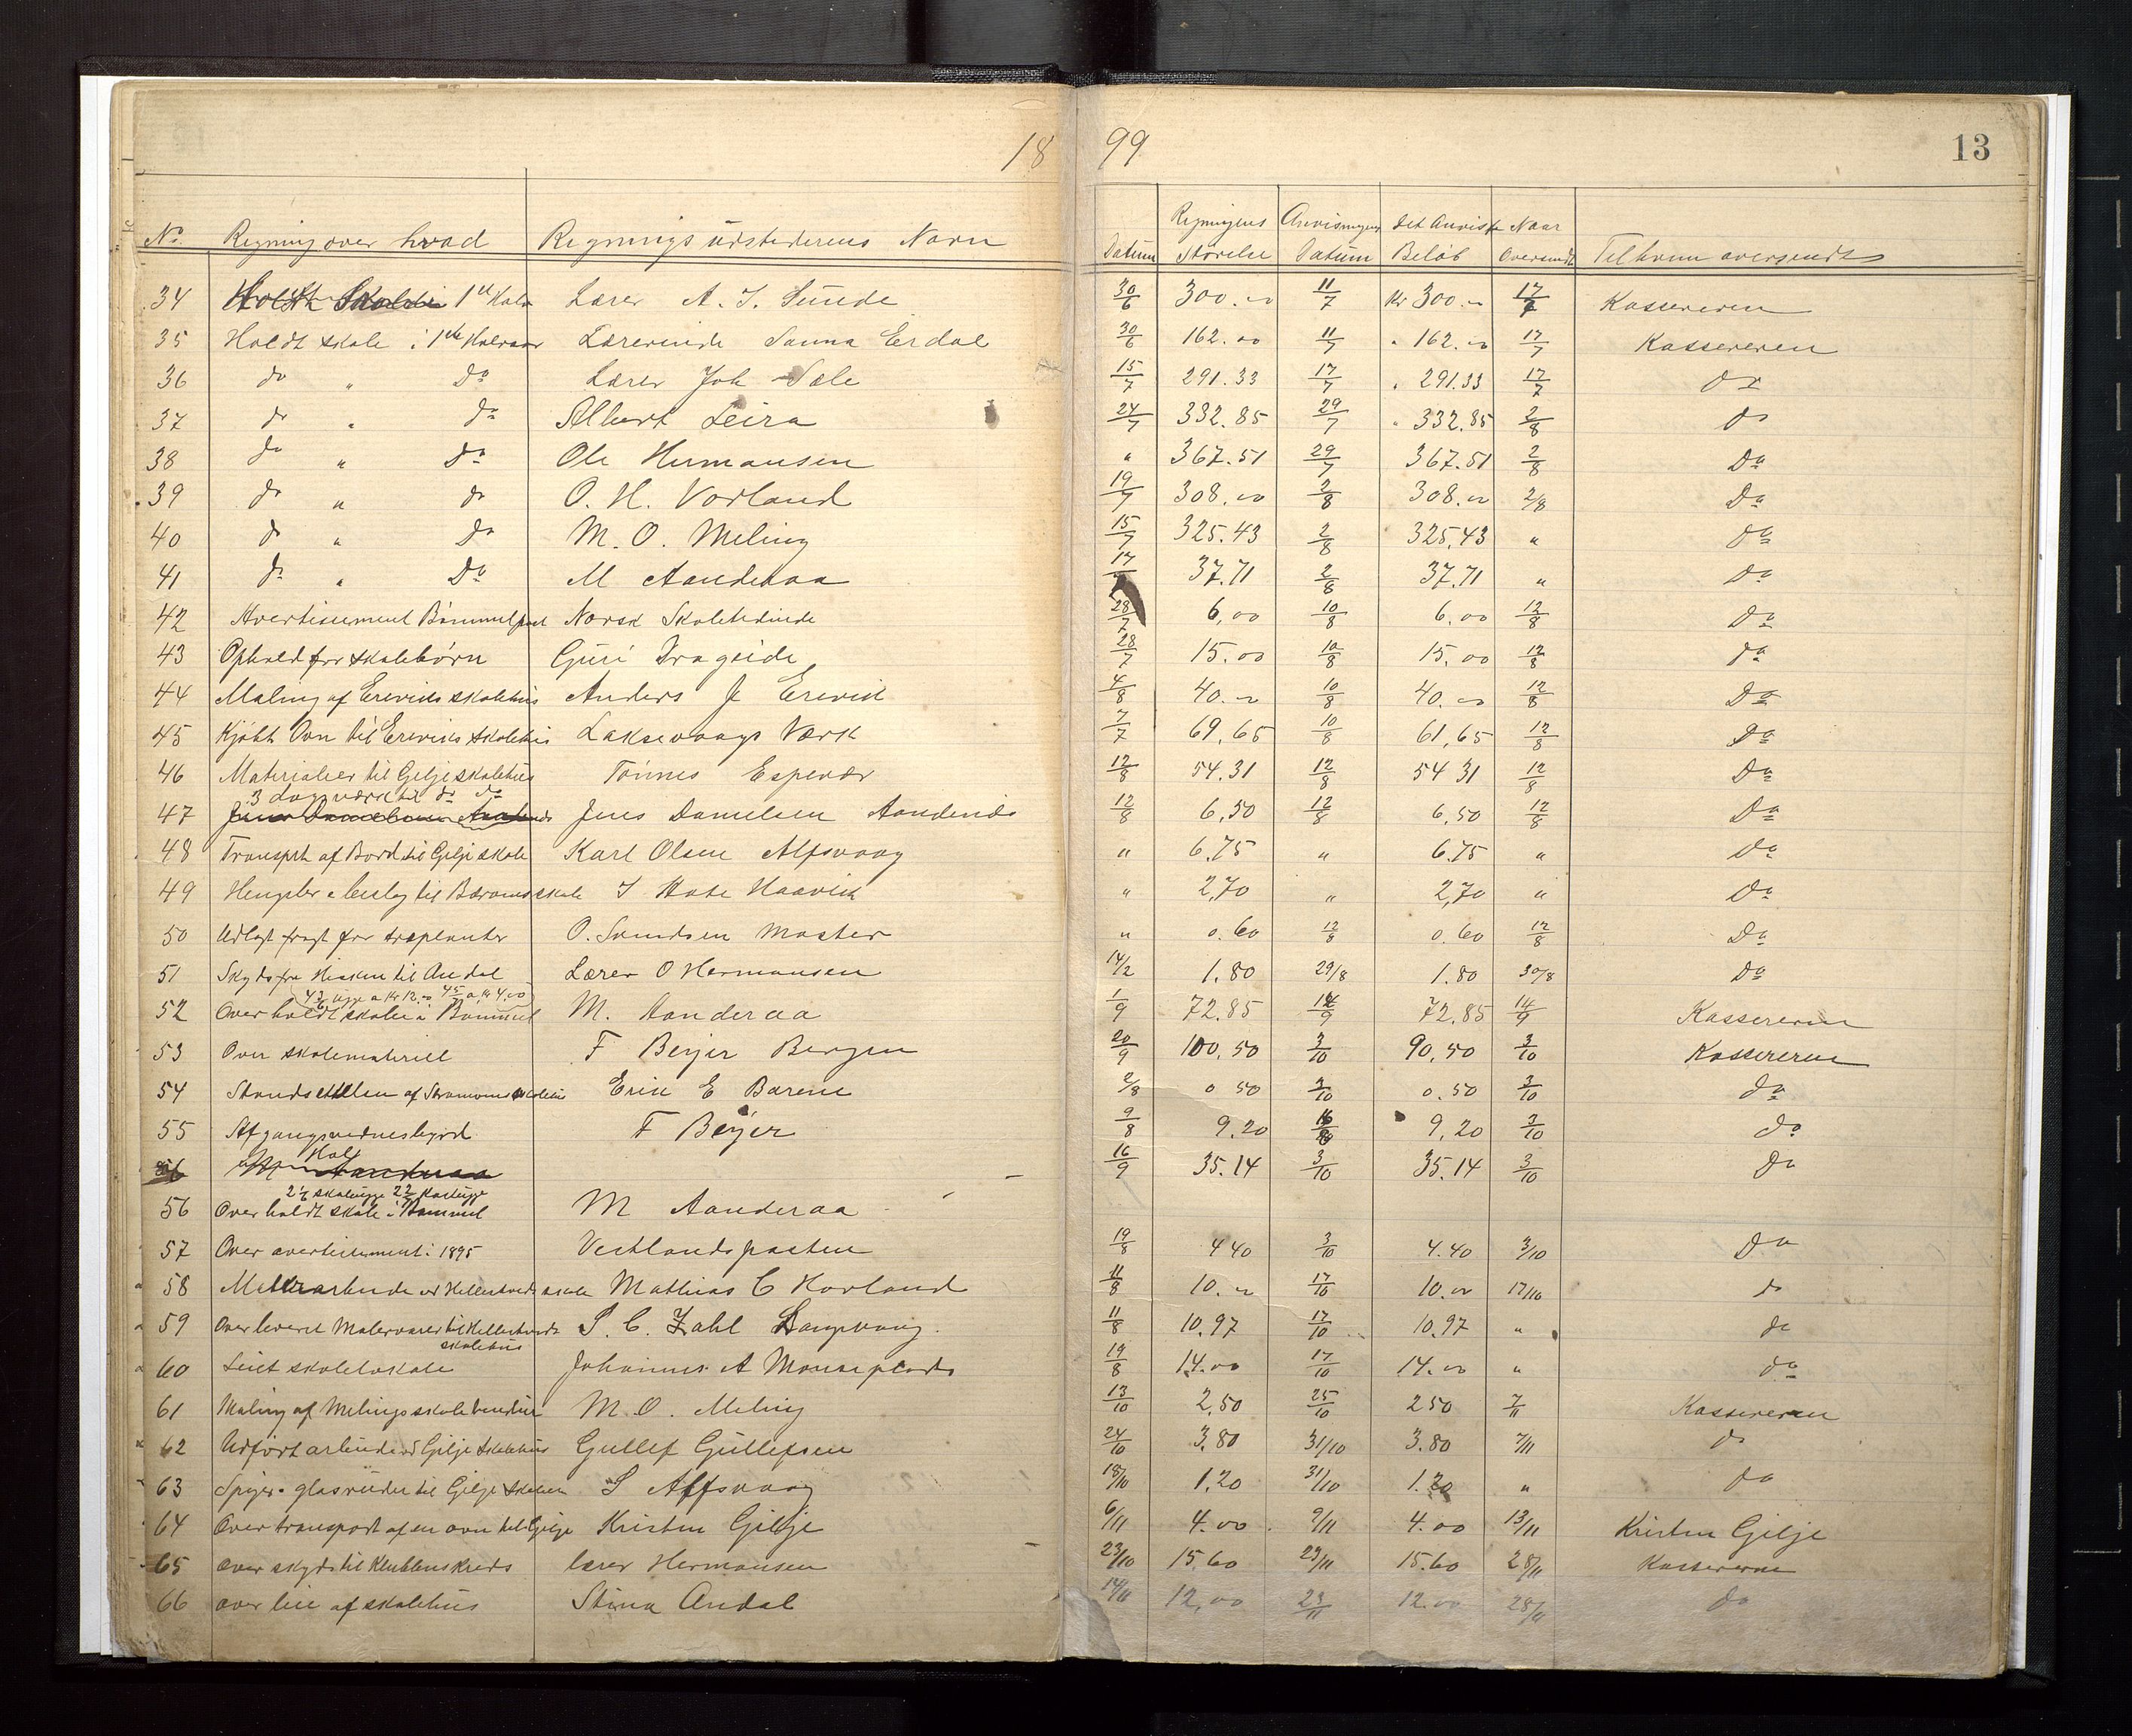 18 99 13
No. Regning over hvad Regningsudstederens Navn Datum Regningens Størelse Anvisningens Datum Det Anviste Beløb Naar Oversendt Til hvem oversendt
34 Holdt Skole i 1ste Halv Lærer A. J. Sunde 30/6 300.00 11/7 Kr 300.00 17/7 Kassereren
35 Holdt skole i 1ste Halvaar Lærerinde Sanna Erdal 30/6 162.00 11/7 " 162.00 17/7 Kassereren
36 do " Do Lærer Joh Sæle 15/7 291.33 17/7 " 291.33 17/7 do
37 do " do Albert Leira 24/7 332.85 29/7 " 332.85 2/8 do
38 do " Do Ole Hermansen " 367.51 29/7 367.51 2/8 Do
39 do " do O. H. Vorland 19/7 308.00 2/8 308.00 2/8 Do
40 do " Do M. O. Meling 15/7 325.43 2/8 325,43 " do
41 do " Do M Aanderaa 17/7 37.71 2/8 37.71 " do
42 Avertissement Bømmelpost Norsk Skoletidende 28/7 6,00 10/8 6.00 12/8 do
43 Ophold for skolebørn Guri Drageide 28/7 15.00 10/8 15.00 12/8 do
44 Maling af Ereviks skolehus Anders J Erevik 4/8 40.00 10/8 40.00 12/8 Do
45 Kjøbt Ovn til Ereviks skolehus Laksevaags Værk 7/7 69,65 10/8 61,65 12/8 Do
46 Materialier til Gilje skolehus Tönnes Espevær 12/8 54.31 12/8 54 31 12/8 Do
3 dagsværk til do do
47 Jens Danielsen Jens Danielsen 12/8 6,50 12/8 6,50 12/8 Do
48 Transprt af Bord til Gilje skole Karl Olsen Alfsvaag " 6.75 " 6.75 " Do
49 Hengsler & beslag til Bærøens skole Haavik " 2,70 " 2,70 " Do
50 Udlagt fragt for træplanter O. Svendsen Moster " 0.60 12/8 0.60 12/8 Do
51 Skyds fra Hisken til Andal Lærer O Hermansen 14/2 1.80 29/8 1.80 30/8 Do
52 Over holdt skole i Bømmel M. Aanderaa 1/9 72.85 14/9 72.85 14/9 Kassereren
53 Over skolemateriell F Beyer Bergen 20/9 100,50 3/10 90,50 3/10 Kassereren
54 Erik E 2/8 0 50 3/10 0.50 3/10 do
55 Afgangsvidnesbyrd F Beyer 9/8 9.20 9,20 3/10 do
56 M Aanderaa 16/9 35.14 3/10 35.14 3/10 Do
56 Over holdt skole i Bømmel M Aanderaa
57 Over avertissement i 1895 Vestlandsposten 19/8 4 40 3/10 4.40 3/10 Do
58 Malerarbeide ved skole Mathias C Hovland 11/8 10.00 17/10 10.00 17/10 do
59 Over leveret Malervarer til S. C. Zahl Langevaag 11/8 10.97 17/10 10.97 " do
skolehus
60 Leiet skolelokale Johannes A Mousepladz 19/8 14.00 17/10 14.00 " do
61 Maling af Melings skole M. O. Meling 13/10 2,50 25/10 2 50 7/11 Kassereren
62 Udført arbeide ved Gilje skolehus Gullef Gullefsen 24/10 3.80 31/10 3.80 7/11 do
63 Spiger & glasruder til Gilje S Alfsvaag 18/10 1,20 31/10 1.20 " do
64 Over transport af en ovn til Gilje Kristen Gilje 6/11 4.00 9/11 4.00 13/11 Kristen Gilje
65 over skyds til kreds lærer Hermansen 23/10 15.60 23/11 15.60 28/11 Kassereren
66 over leie af skolehus Stina Andal 14/11 12,00 23/11 12.00 28/11 do